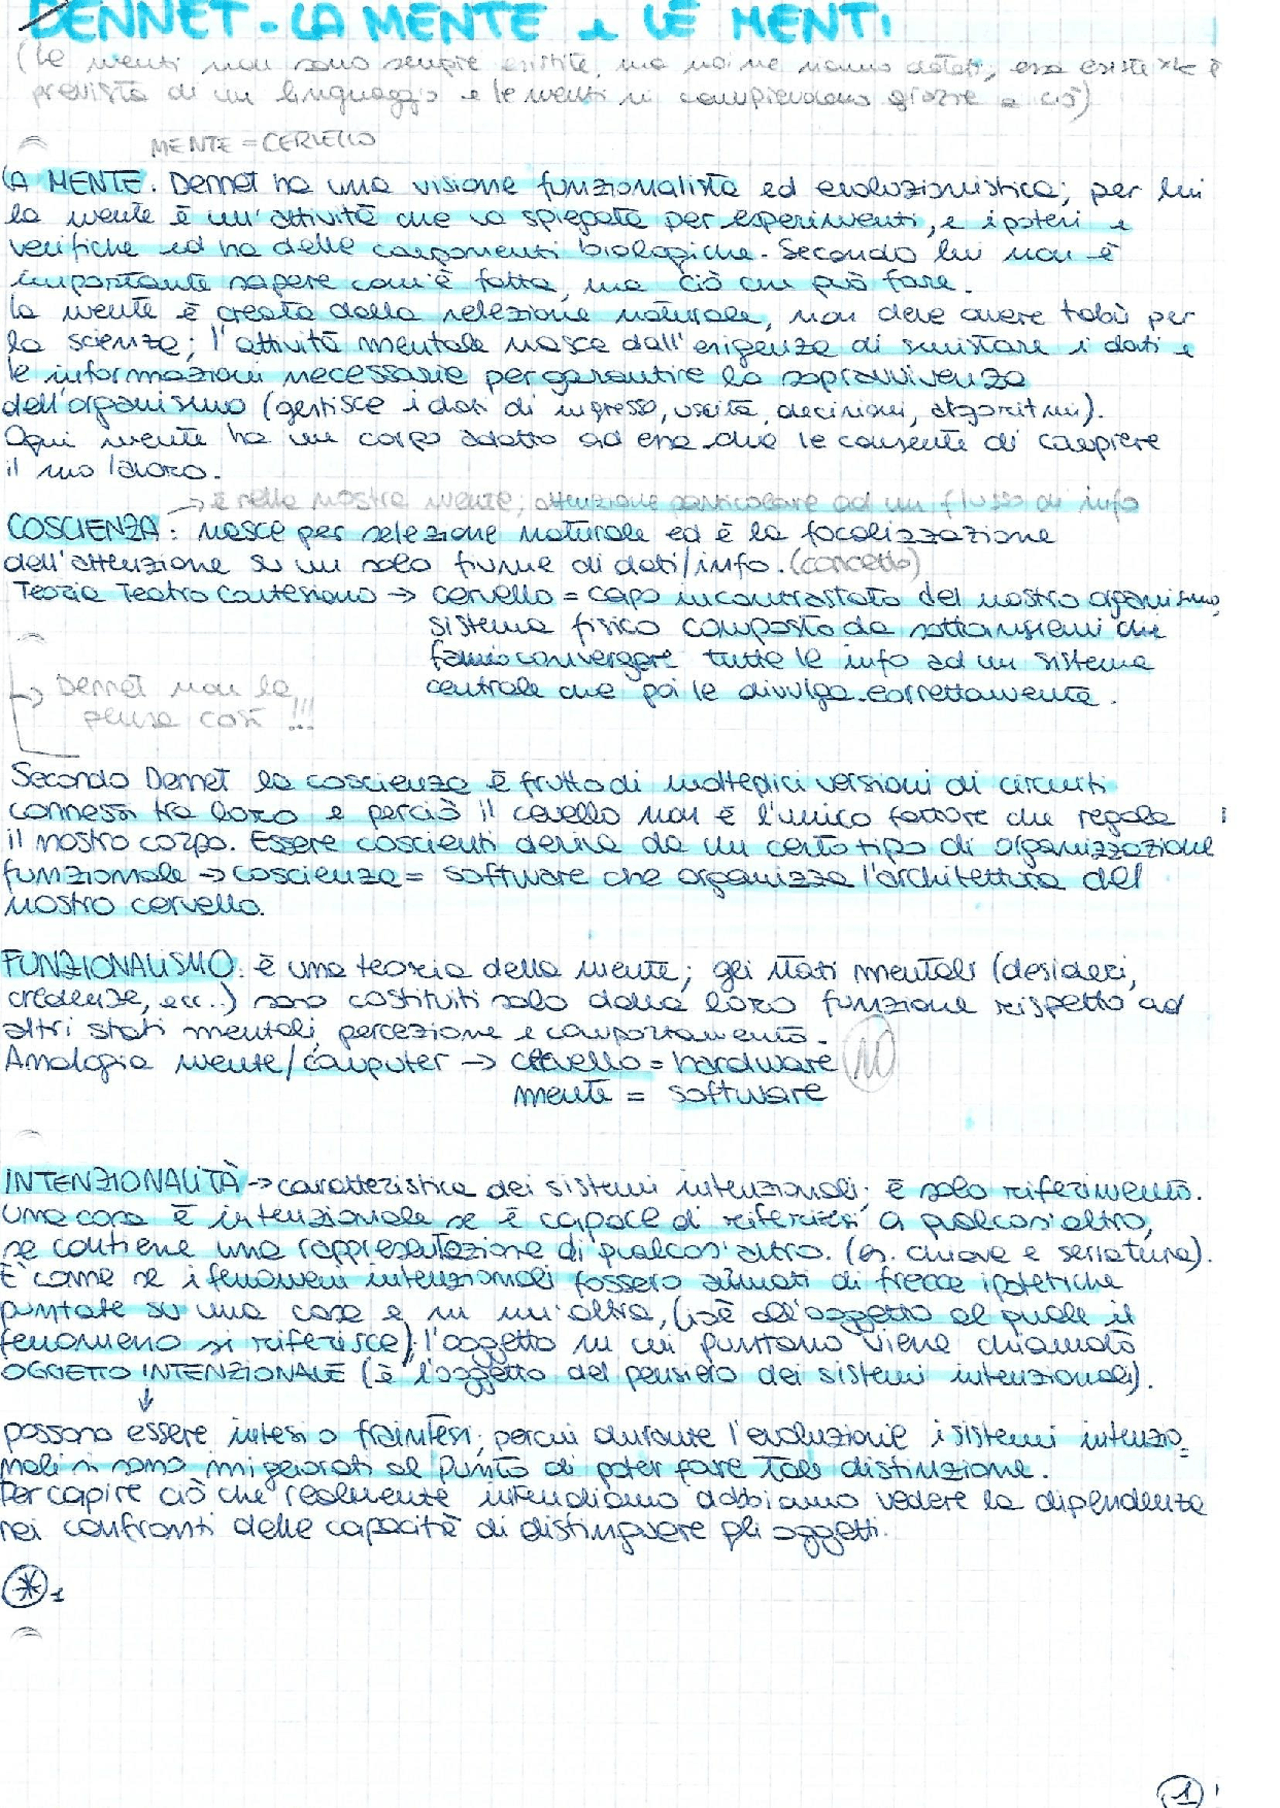 DENNET - LA MENTE e LE MENTI
(Le menti non sono sempre esistite, ma noi ne siamo dotati; essa esiste xkè è
prevista di un linguaggio e le menti si comprendono grazie a ciò)
MENTE = CERVELLO
LA MENTE. Dennet ha una visione funzionalista ed evoluzionistica; per lui
la mente è un'attività che va spiegata per esperimenti, e ipotesi e
verifiche ed ha delle componenti biologiche. Secondo lui non è
importante sapere com'è fatta, ma ciò che può fare.
La mente è creata dalla selezione naturale, non deve avere tabù per
la scienza; l'attività mentale nasce dall'esigenza di smistare i dati e
le informazioni necessarie per garantire la sopravvivenza
dell'organismo (gestisce i dati di ingresso, uscita, decisioni, algoritmi).
Ogni mente ha un corpo adatto ad essa che le consente di compiere
il suo lavoro.
→ è nella nostra mente; attenzione particolare ad un flusso di info
COSCIENZA: nasce per selezione naturale ed è la focalizzazione
dell'attenzione su un solo fiume di dati/info. (concetto)
Teoria Teatro Cartesiano → cervello = capo incontrastato del nostro organismo,
sistema fisico composto da sottoinsiemi che
fanno convergere tutte le info ad un sistema
centrale che poi le divulga correttamente.
↳ Dennet non la
pensa così !!!
Secondo Dennet la coscienza è frutto di molteplici versioni di circuiti
connessi tra loro e perciò il cervello non è l'unico fattore che regola
il nostro corpo. Essere coscienti deriva da un certo tipo di organizzazione
funzionale → coscienza = software che organizza l'architettura del
nostro cervello.
FUNZIONALISMO: è una teoria della mente; gli stati mentali (desideri,
credenze, ecc..) sono costituiti solo dalla loro funzione rispetto ad
altri stati mentali, percezione e comportamento.
Analogia mente/computer → cervello = hardware
mente = software
INTENZIONALITÀ → caratteristica dei sistemi intenzionali; è solo riferimento.
Una cosa è intenzionale se è capace di riferirsi a qualcos'altro,
se contiene una rappresentazione di qualcos'altro. (es. chiave e serratura).
È come se i fenomeni intenzionali fossero armati di frecce ipotetiche
puntate su una cosa e su un'altra, (cioè all'oggetto al quale il
fenomeno si riferisce); l'oggetto su cui puntano viene chiamato
OGGETTO INTENZIONALE (è l'oggetto del pensiero dei sistemi intenzionali).
↓
possono essere intesi o fraintesi; perché durante l'evoluzione i sistemi intenzio=
nali si sono migliorati al punto di poter fare tale distinzione.
Per capire ciò che realmente intendiamo dobbiamo vedere la dipendenza
nei confronti delle capacità di distinguere gli oggetti.
*1
1